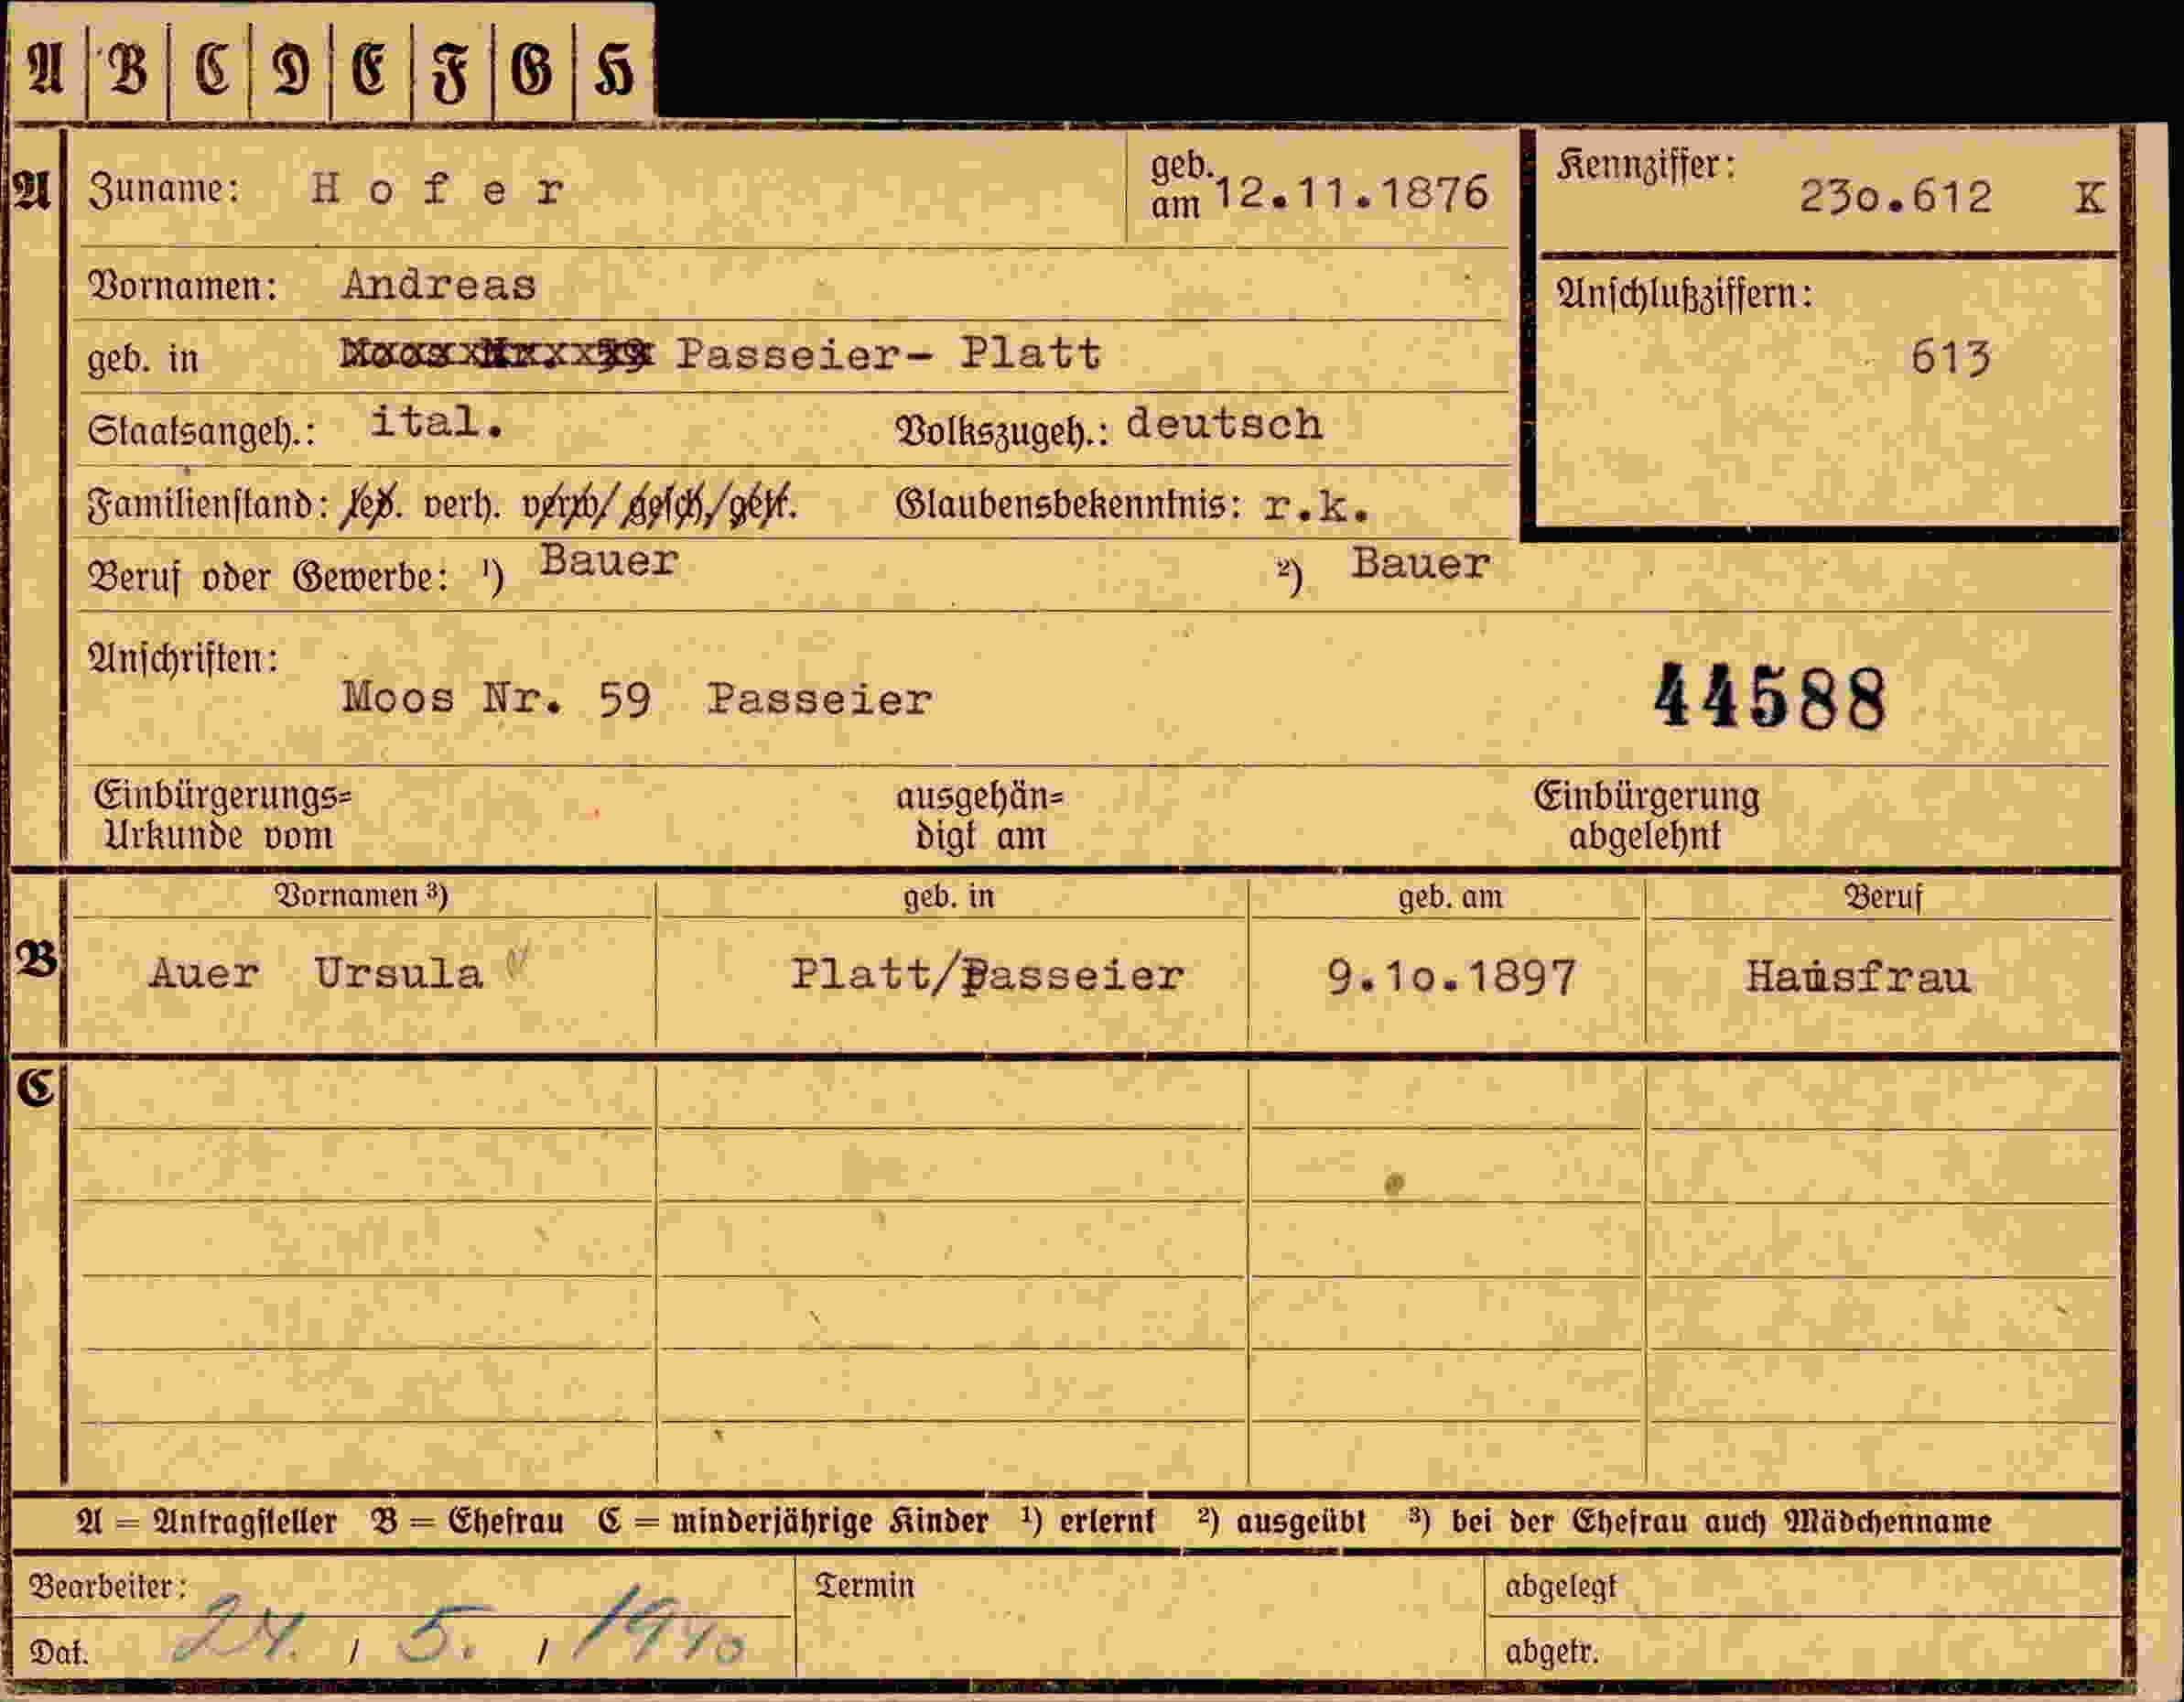 A B C D E F G H
A Zuname: Hofer geb. am 12.11.1876 Kennziffer: 230.612 K
Vornamen: Andreas Anschlußziffern:
geb. in Moos Nr. 59 Passeier- Platt 613
Staatsangeh.: ital. Volkszugeh.: deutsch
Familienstand: led. verh. verw/ gesch./getr. Glaubensbekenntnis: r.k.
Beruf oder Gewerbe: ¹) Bauer ²) Bauer
Anschriften:
Moos Nr. 59 Passeier 44588
Einbürgerungs= ausgehän= Einbürgerung
Urkunde vom digt am abgelehnt
Vornamen ³) geb. in geb. am Beruf
B Auer Ursula Platt/Passeier 9.10.1897 Hausfrau
C
A = Antragsteller B = Ehefrau C = minderjährige Kinder ¹) erlernt ²) ausgeübt ³) bei der Ehefrau auch Mädchenname
Bearbeiter: Termin abgelegt
Dat. 24. / 5. / 1940 abgetr.